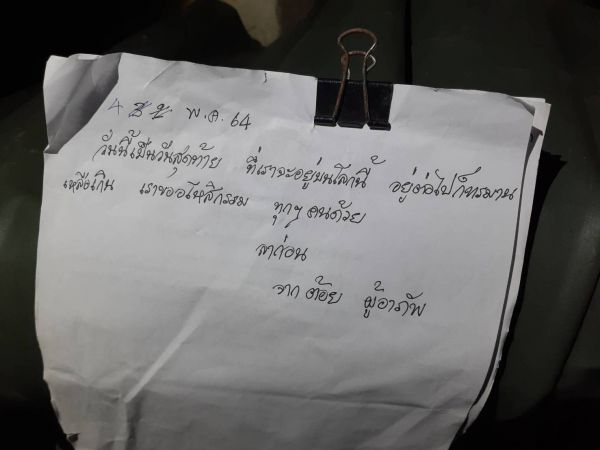 พ.ค. 64
วันนี้เป็นวันสุดท้าย ที่เราจะอยู่บนโลกนี้ อยู่ต่อไปก็ทรมาน
เหลือเกิน เราขออโหสิกรรม ทุกๆ คนด้วย
ลาก่อน
จาก ต้อย ผู้อาภัพ